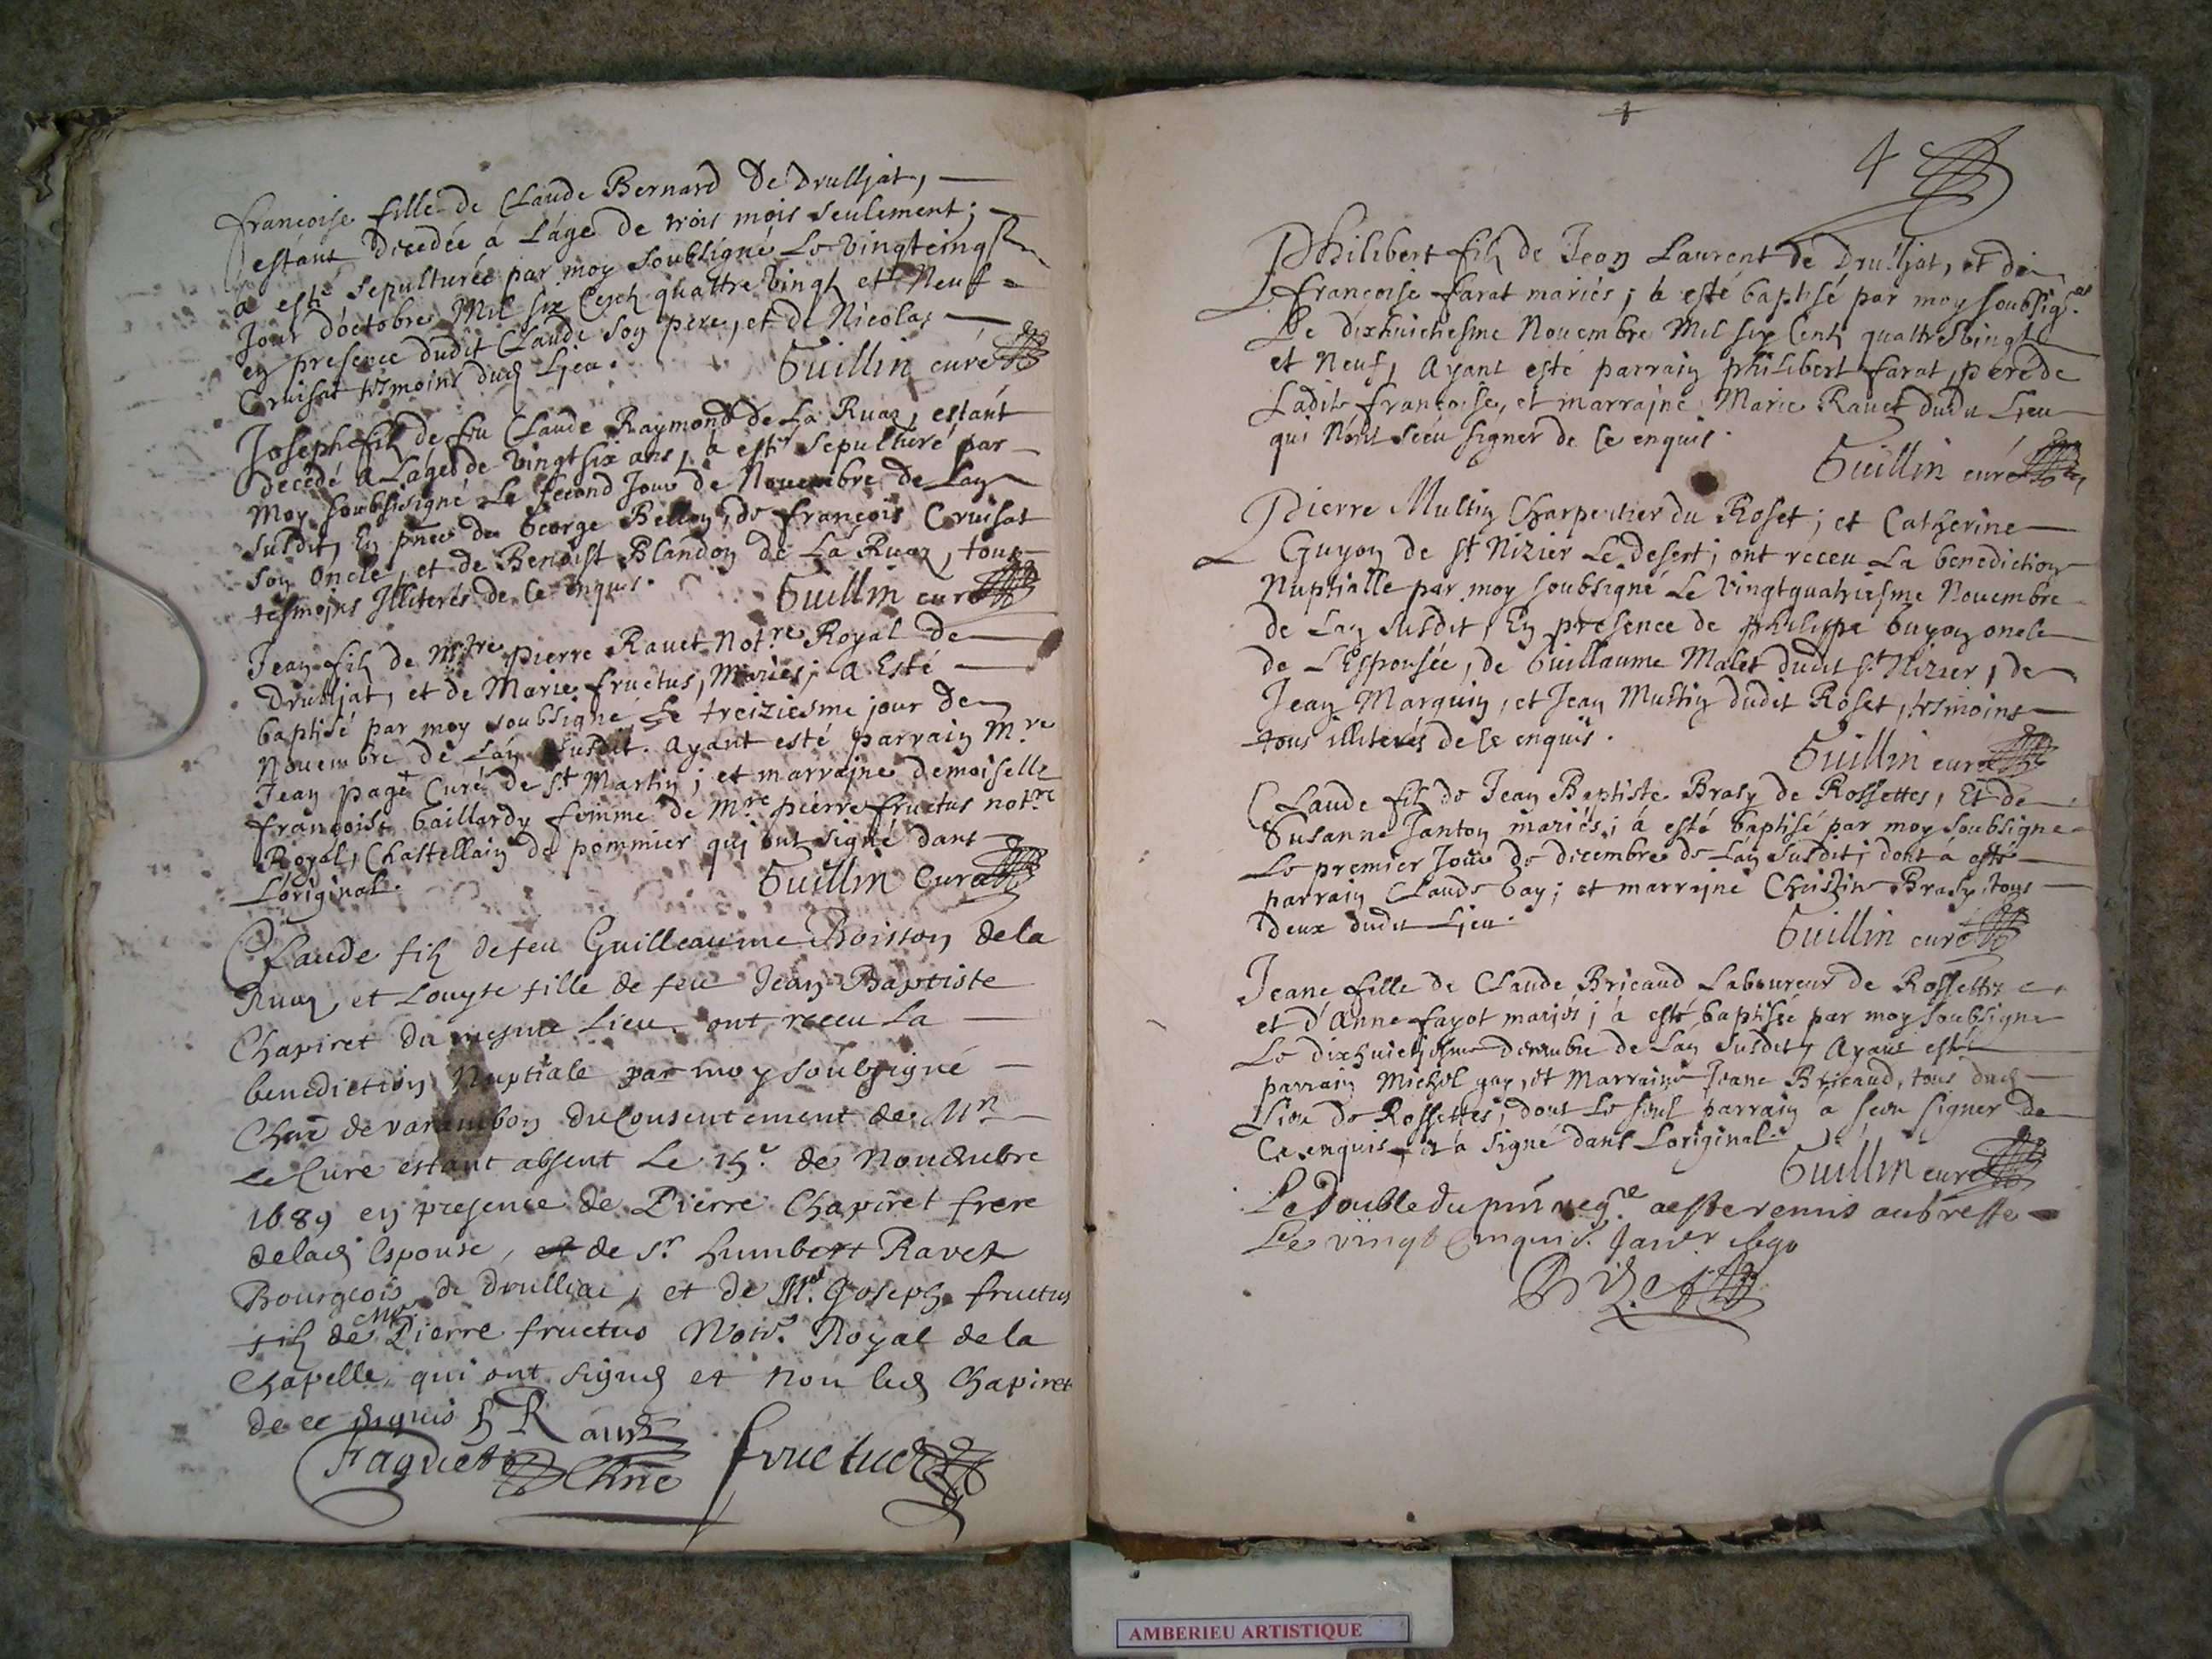 françoise fille de Claude Bernard de Drulljat,
estant decedée á l'áge de trois mois seulement;
a esté sepulturée par moy soubsigné Le vingtcinq
Jour d'octobre Mil six Cents quattre vingt et Neuf
en presence dudit Claude son pere, et de Nicolas
Cruisat tesmoins dud Ljeu.
Guillin curé
Joseph fils de feu Claude Raymond de La Ruaz, estant
decédé a L'áge de vingtsix ans, à esté sepulturé par
moy soubsigné Le second Jour de Nouembre de Lan
susdit, En pnce de George Bellon, de françois Cruisat
son Oncle, et de Benoist Blandon de La Ruaz, tous
tesmoins Illiterés de ce enquis.
Guillin curé
Jean fils de Mtre pierre Rauet Notre Royal de
Drulljat, et de Marie fructus, Mariés; a Esté
baptisé par moy soubsigné Le treiziesme jour de
Nouembre de Lan susdit. ayant esté parrain Mre
Jean page Curé de St Martin; et marrajne demoiselle
françoise Gaillardy femme de Mre pierre fructus notre
Royal, Chastellain de pommier quj ont signé dans
L'original.
Guillin Curé
Claude fils de feu Guilleaume Boisson de la
Ruaz, et Louyse fille de feu Jean Baptiste
Chapiret du mesme lieu ont receu la
benediction Nuptiale par moy soubsigné
Chne de varambon du Consentement de Mr
Le Curé estant absent Le 15e de Nouembre
1689 en presence de Pierre Chapiret frere
de lad Espouse, et de Sr humbert Ravet
Bourgeois de drulliat, et de Mre Joseph fructus
fils de Mre Pierre fructus Notre Royal de la
Chapelle qui ont signés et non led Chapiret
de ce enquis H Rauet
faguet Chne fructus
4
Philibert fils de Jean Laurent de Drulljat, et de
françoise farat mariés; à esté baptisé par moy soubsigné
Le dixhuichesme Nouembre Mil six Cents quattre vingt
et Neuf, Ayant esté parrain philibert farat, pere de
Ladite françoise, et marrajne Marie Rauet dudit Ljeu
qui n'ont sceu signer de ce enquis.
Guillin curé
Pierre Multin Charpentier du Roset; et Catherine
Guyon de St Nizier Le desert; ont receu La benediction
Nuptialle par moy soubsigné Le vingtquatriesme Nouembre
de Lan susdit, En presence de philippe Guyon oncle
de L'Espousée, de Guillaume Malet dudit St Nizier, de
Jean Marguin, et Jean Multin dudit Roset, tesmoins
tous illiterés de ce enquis.
Guillin curé
Claude fils de Jean Baptiste Brasy de Rossettes, Et de
Susanne Janton mariés; á esté baptisé par moy soubsigné
Le premier Jour de decembre de Lan susdit; dont á esté
parrain Claude Gay; et marrajne Christine Brasy, tous
deux dudit Ljeu.
Guillin curé
Jeane fille de Claude Bricaud Laboureur de Rossettes
et d'Anne fayot mariés; à esté baptisée par moy soubsigné
Le dixhuictiesme decembre de Lan susdit, Ayant esté
parrain Michel gay, et Marraine Jeane Bricaud, tous dud
Lieu de Rossettes; dont Le seul parrain á sceu signer de
Ce enquis, et á signé dans Loriginal.
Guillin curé
Le double du pnt regre a esté remis au greffe
Le vingt cinquie Janer 1690
AMBERIEU ARTISTIQUE